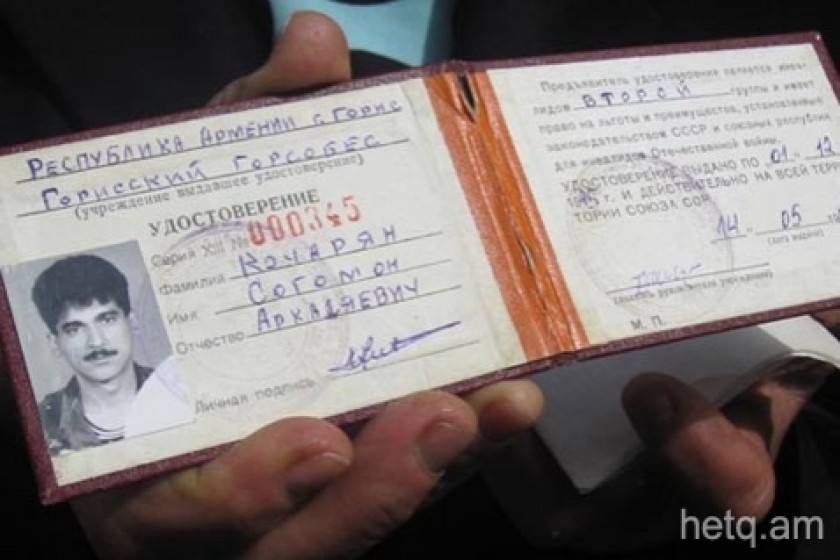 РЕСПУБЛИКА АРМЕНИИ г. ГОРИС
ГОРИССКИЙ ГОРСОБЕС
(учреждение выдавшее удостоверение)
УДОСТОВЕРЕНИЕ
Серия XIII № 000345
Фамилия КОЧАРЯН
Имя СОГОМОН
Отчество АРКАДЯЕВИЧ
Личная подпись
Предъявитель удостоверения является инва-
лидом ВТОРОЙ группы и имеет
право на льготы и преимущества, установленные
законодательством СССР и союзных республик
для инвалидов Отечественной войны.
УДОСТОВЕРЕНИЕ ВЫДАНО ПО 01 12
И ДЕЙСТВИТЕЛЬНО НА ВСЕЙ ТЕРРИ-
ТОРИИ СОЮЗА ССР
14 05
(дата выдачи)
(подпись руководителя учреждения)
М. П.
hetq.am